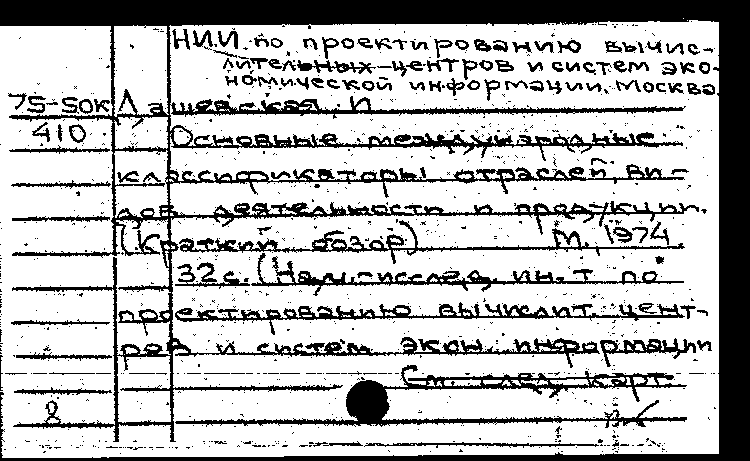 НИИ по проектированию вычис-
лительных центров и систем эко-
номической информации. Москва.
75-50К Дашевская И
410 Основные международные
классификаторы отраслей, ви-
дов деятельности и продукции.
(Краткий обзор) М., 1974.
32с. (Науч.-исслед. ин-т по
проектированию вычислит. цент-
ров и систем экон. информации
См. след. карт.
8